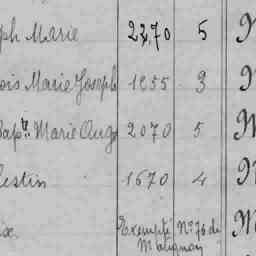 ph Marie 2270 5
ois Marie Joseph 1855 3
Bapt. Marie Aug 2070 5
lestin 1670 4
Exempté Nº 76 de
Matignon